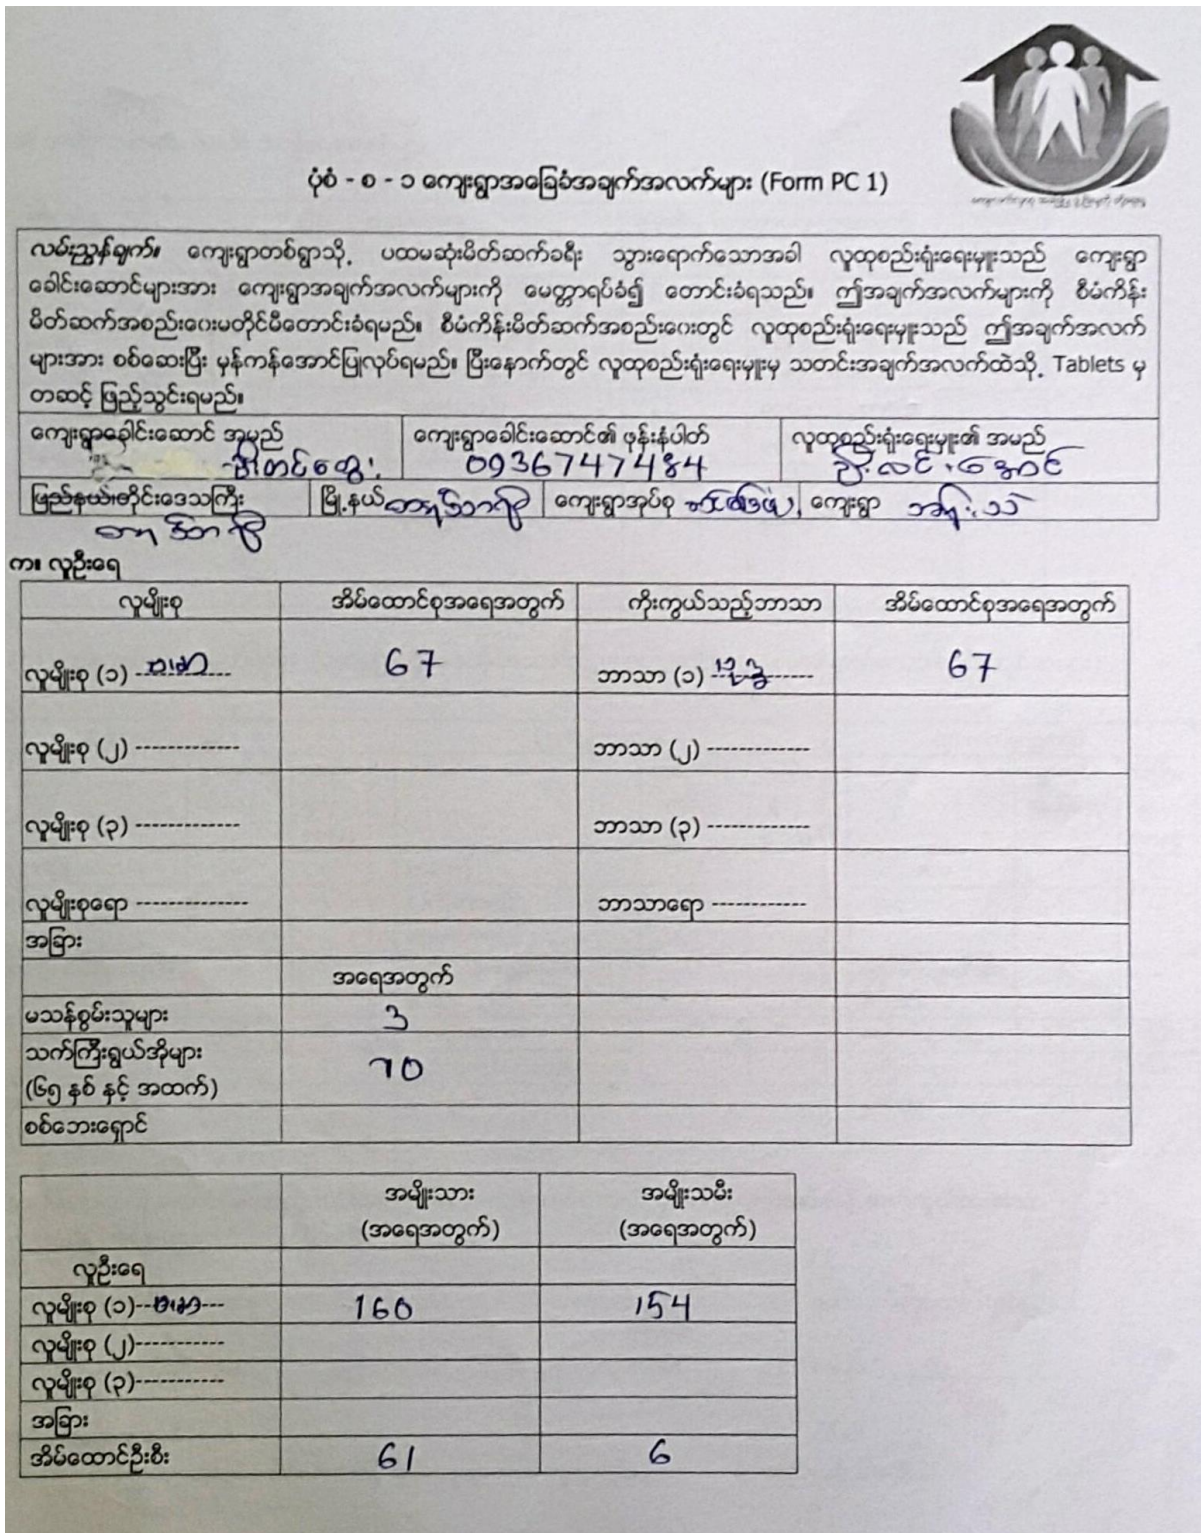 ပုံစံ - စ - ၁ ကျေးရွာအခြေခံအချက်အလက်များ (Form PC 1)
လမ်းညွှန်ချက်။ ကျေးရွာတစ်ရွာသို့ ပထမဆုံးမိတ်ဆက်ခရီး သွားရောက်သောအခါ လူထုစည်းရုံးရေးမှူးသည် ကျေးရွာ
ခေါင်းဆောင်များအား ကျေးရွာအချက်အလက်များကို မေတ္တာရပ်ခံ၍ တောင်းခံရသည်။ ဤအချက်အလက်များကို စီမံကိန်း
မိတ်ဆက်အစည်းဝေးမတိုင်မီတောင်းခံရမည်။ စီမံကိန်းမိတ်ဆက်အစည်းဝေးတွင် လူထုစည်းရုံးရေးမှူးသည် ဤအချက်အလက်
များအား စစ်ဆေးပြီး မှန်ကန်အောင်ပြုလုပ်ရမည်။ ပြီးနောက်တွင် လူထုစည်းရုံးရေးမှူးမှ သတင်းအချက်အလက်ထဲသို့ Tablets မှ
တဆင့် ဖြည့်သွင်းရမည်။
ကျေးရွာခေါင်းဆောင် အမည် ကျေးရွာခေါင်းဆောင်၏ ဖုန်းနံပါတ် လူထုစည်းရုံးရေးမှူး၏ အမည်
0936747484
ပြည်နယ်၊တိုင်းဒေသကြီး မြို့နယ် ကျေးရွာအုပ်စု ကျေးရွာ
က။ လူဦးရေ
လူမျိုးစု အိမ်ထောင်စုအရေအတွက် ကိုးကွယ်သည့်ဘာသာ အိမ်ထောင်စုအရေအတွက်
လူမျိုးစု (၁) ဗမာ 67 ဘာသာ (၁) ဗုဒ္ဓ 67
လူမျိုးစု (၂) ------------- ဘာသာ (၂) -------------
လူမျိုးစု (၃) ------------- ဘာသာ (၃) -------------
လူမျိုးစုရော -------------- ဘာသာရော ------------
အခြား
အရေအတွက်
မသန်စွမ်းသူများ 3
သက်ကြီးရွယ်အိုများ
(၆၅ နှစ် နှင့် အထက်) 10
စစ်ဘေးရှောင်
အမျိုးသား အမျိုးသမီး
(အရေအတွက်) (အရေအတွက်)
လူဦးရေ
လူမျိုးစု (၁)--ဗမာ--- 160 154
လူမျိုးစု (၂)-----------
လူမျိုးစု (၃)-----------
အခြား
အိမ်ထောင်ဦးစီး 61 6